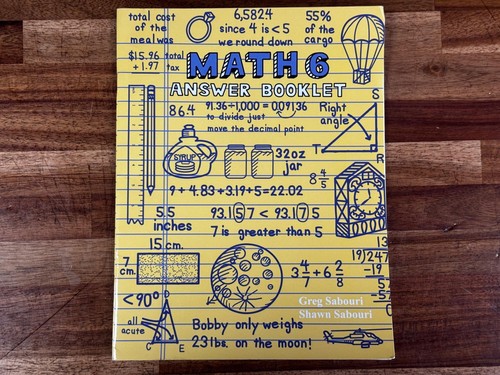 total cost
of the
meal was
$15.96 total
+ 1.97 tax
6,582.4
since 4 is < 5
we round down
55%
of the
cargo
MATH 6
ANSWER BOOKLET
864
91.36÷1,000 = 0.09136
to divide just
move the decimal point
Right
angle
S
T
R
SYRUP
32oz
jar
8 4/5
9 + 4.83 + 3.19 + 5 = 22.02
5.5
inches
93.157 < 93.175
7 is greater than 5
15 cm.
7
cm.
3 4/7 + 6 2/8
13
19)247
-19
5
-5
0
<90°
D
all
acute
C
E
Greg Sabouri
Shawn Sabouri
Bobby only weighs
23 lbs. on the moon!